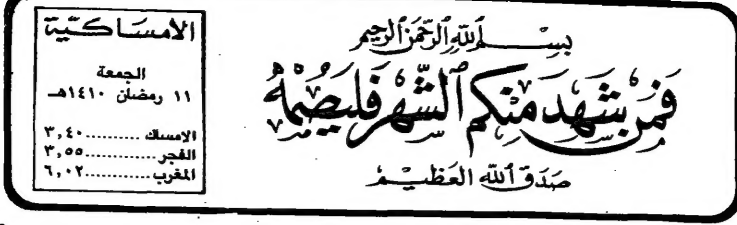 بِسْمِ اللَّهِ الرَّحْمَٰنِ الرَّحِيمِ
فَمَن شَهِدَ مِنكُمُ ٱلشَّهْرَ فَلْيَصُمْهُ
صَدَقَ ٱللَّه العَظِيْم
الامسَاكيّة
الجمعة
١١ رمضان ١٤١٠هـ
الإمساك ..........٣,٤٠
الفجر ..............٣,٥٥
المغرب............٦,٠٢